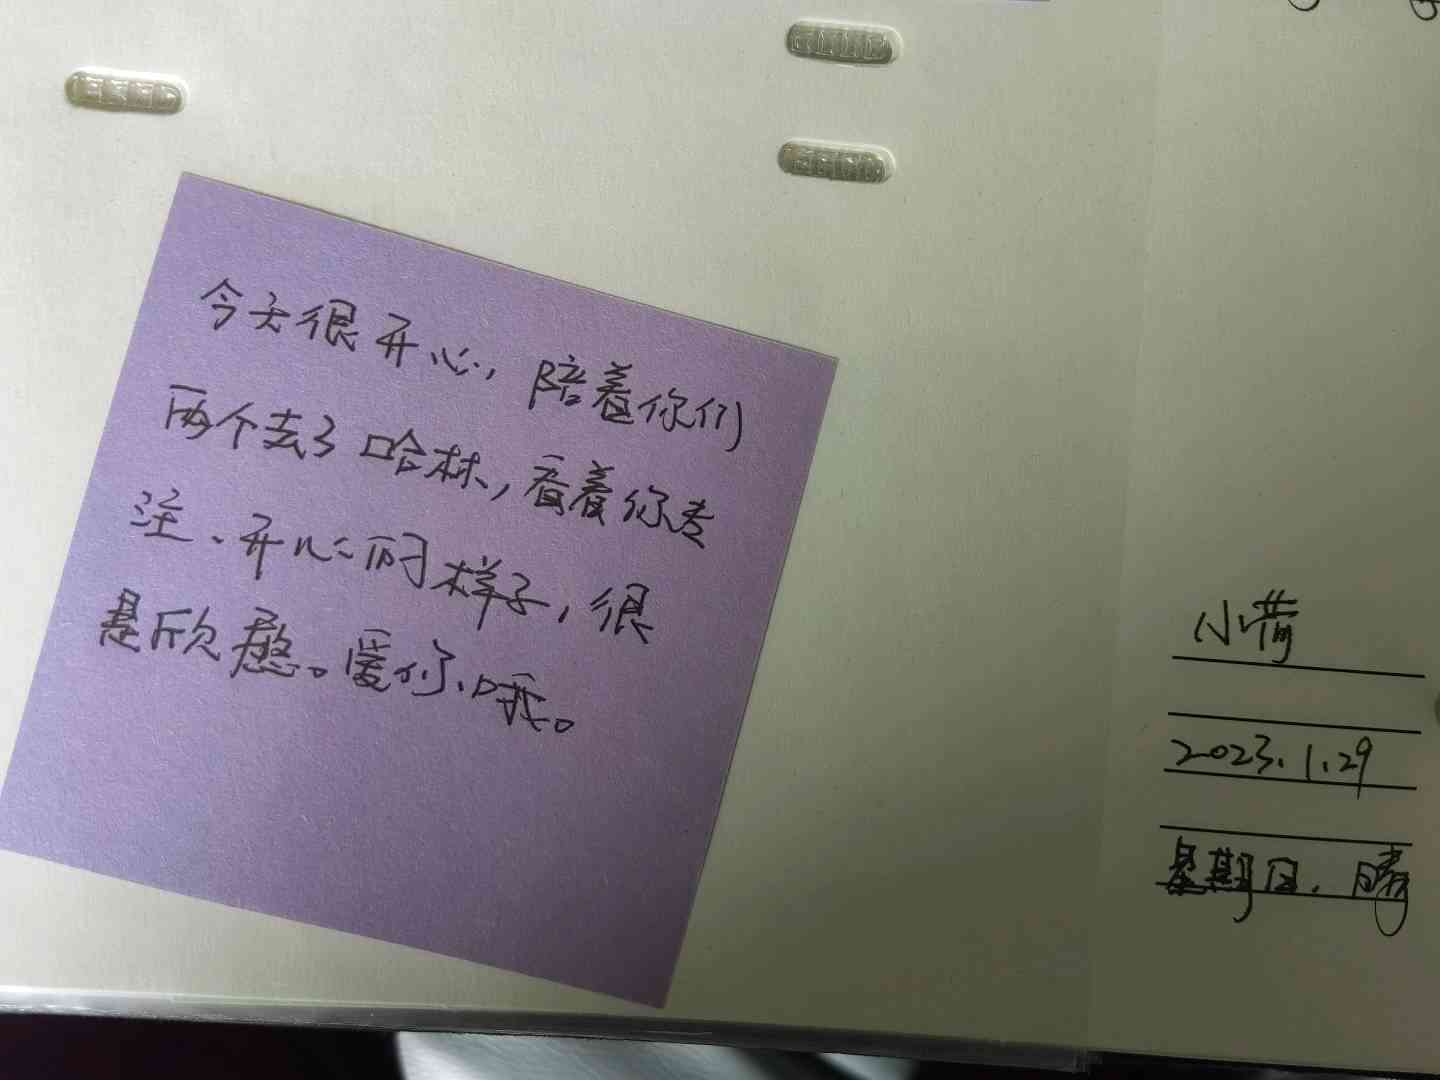 今天很开心,陪着你们
两个去了哈林,看着你专
注、开心的样子,很
是欣慰。爱你哦。
小荷
2023.1.29
星期日.晴